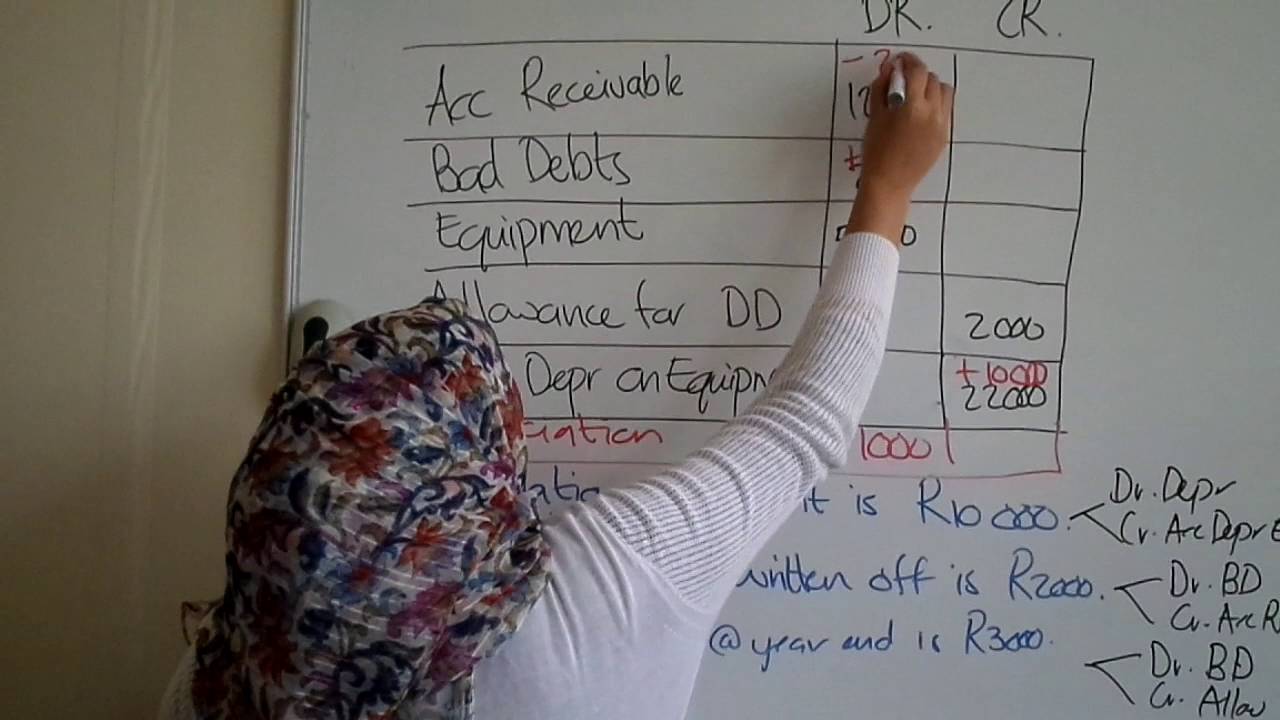 DR. CR.
Acc Receivable
Bad Debts
Equipment
Allowance for DD 2000
+1000
Depr on Equipm 22000
iation 1000
it is R10 000. Dr. Depr
Cr. Acc Depr E
written off is R2000. Dr. BD
Cr. Acc R
@ year end is R3000.
Dr. BD
Cr. Allow